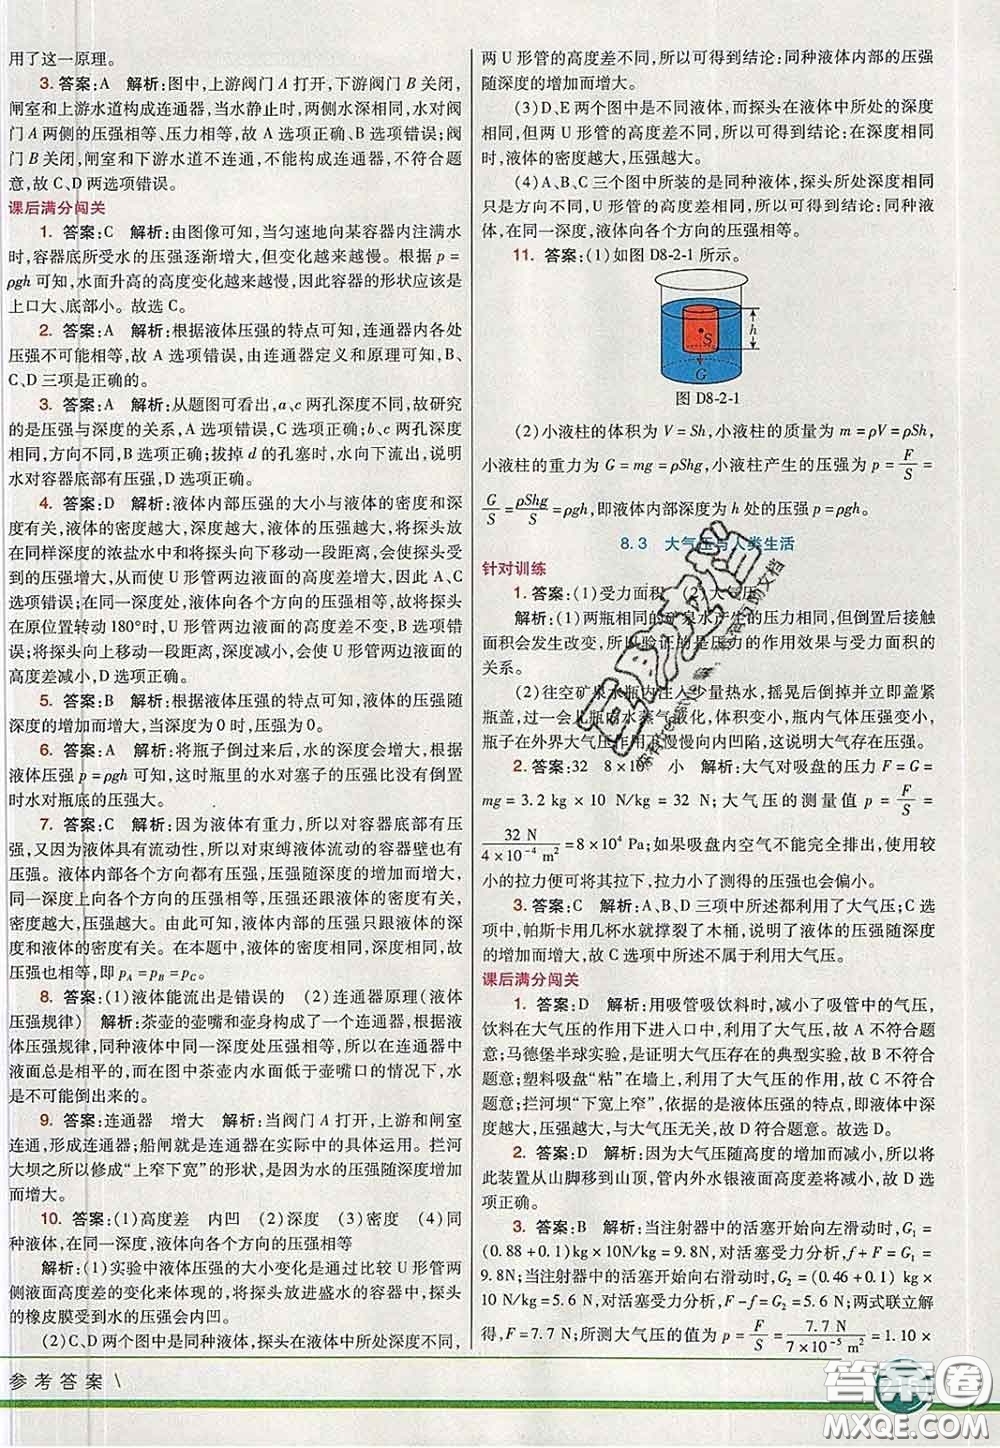 用了这一原理。
3. 答案:A　解析:图中,上游阀门 A 打开,下游阀门 B 关闭,
闸室和上游水道构成连通器,当水静止时,两侧水深相平,水对阀
门 A 两侧的压强相等、压力相等,故 A 选项正确、B 选项错误;阀
门 B 关闭,闸室和下游水道不连通,不能构成连通器,不符合题
意,故 C、D 两选项错误。
课后满分闯关
1. 答案:C　解析:由图像可知,当匀速地向某容器内注满水
时,容器底所受水的压强逐渐增大,但变化越来越慢。根据 p =
ρgh 可知,水面升高的高度变化越来越慢,因此容器的形状应该是
上口大、底部小。故选 C。
2. 答案:A　解析:根据液体压强的特点可知,连通器内各处
压强不可能相等,故 A 选项错误,由连通器定义和原理可知,B、
C、D 三项是正确的。
3. 答案:A　解析:从题图可看出,a、c 两孔深度不同,故研究
的是压强与深度的关系,A 选项正确,C 选项错误;b、c 两孔深度
不同,方向不同,B 选项错误;拔掉 d 的孔塞时,水向下流出,说明
水对容器底部有压强,D 选项正确。
4. 答案:D　解析:液体内部压强的大小与液体的密度和深
度有关,液体的密度越大,深度越大,液体的压强越大,将探头放
在同样深度的浓盐水中和将探头向下移动一段距离,会使探头受
到的压强增大,会使 U 形管两边液面的高度差增大,因此 A、C
选项错误;在同一深度处,液体向各个方向的压强相等,故将探头
在原位置转动 180°时,U 形管两边液面的高度差不变,B 选项错
误;将探头向上移动一段距离,深度减小,会使 U 形管两边液面的
高度差减小,因此 D 选项正确。
5. 答案:B　解析:根据液体压强的特点可知,液体压强随
深度的增加而增大,当深度为 0 时,压强为 0。
6. 答案:A　解析:将瓶子倒过来后,水的深度变大,根据
液体压强 p = ρgh 可知,这时瓶里的水对塞子的压强比没有倒置
时水对瓶底的压强大。
7. 答案:C　解析:因为液体有重力,所以对容器底部有压
强,又因为液体具有流动性,所以对束缚液体流动的容器壁也有
压强。液体内部各个方向都有压强,压强随深度的增加而增大,
同一深度向各个方向的压强相等,压强还跟液体的密度有关系,
密度越大,压强越大。由此可知,液体内部的压强只跟液体的深
度和液体的密度有关。在本题中,液体的密度相同,深度相同,故
压强也相等,即 pA = pB = pC。
8. 答案:(1)液体能流出是错误的　(2)连通器原理(液体
压强规律)　解析:茶壶的壶嘴和壶身构成了一个连通器,根据
液体压强规律,同种液体中同一深度处压强相等,所以连通器中
液面总是相平的,而在图中茶壶内水面低于壶嘴口的情况下,水
是不可能倒出来的。
9. 答案:连通器　增大　解析:当阀门 A 打开,上游和闸室
连通,形成连通器;船闸就是连通器在实际中的具体运用。拦河
大坝之所以修成“上窄下宽”的形状,是因为水的压强随深度增加
而增大。
10. 答案:(1)高度差　内凹　(2)深度　(3)密度　(4)同
种液体,在同一深度,液体向各个方向的压强相等
解析:(1)实验中液体压强的大小变化是通过比较 U 形管两
侧液面高度差的变化来体现的,将探头放进盛水的容器中,探头
的橡皮膜受到水的压强会内凹。
(2)C、D 两个图中是同种液体,探头在液体中所处深度不同,
两 U 形管的高度差不同,所以可得到结论:同种液体内部的压强
随深度的增加而增大。
(3)D、E 两个图中是不同液体,而探头在液体中所处的深度相
同,但两 U 形管的高度差不同,所以可得到结论:在深度相同
时,液体的密度越大,压强越大。
(4)A、B、C 三个图中所装的是同种液体,探头所处深度相同,
只是方向不同,U 形管的高度差相同,所以可得到结论:同种液
体,在同一深度,液体向各个方向的压强相等。
11. 答案:(1)如图 D8-2-1 所示。
S
h
G
图 D8-2-1
(2)小液柱的体积为 V = Sh,小液柱的质量为 m = ρV = ρSh,
小液柱的重力为 G = mg = ρShg,小液柱产生的压强为 p = F/S =
G/S = ρShg/S = ρgh,即液体内部深度为 h 处的压强 p = ρgh。
8.3　大气压与人类生活
针对训练
1. 答案:(1)受力面积　(2)大气压
解析:(1)两瓶相同的矿泉水产生的压力相同,但倒置后接触
面积会发生改变,所以验证的是压力的作用效果与受力面积的
关系。
(2)往空矿泉水瓶内注入少量热水,摇晃后倒掉并立即盖紧
瓶盖,一会儿瓶内水蒸气液化,体积变小,瓶内气体压强变小,
瓶子在外界大气压作用下慢慢向内凹陷,这说明大气存在压强。
2. 答案:32　8×10⁴　小　解析:大气对吸盘的压力 F = G =
mg = 3.2 kg × 10 N/kg = 32 N;大气压的测量值 p = F/S =
32 N/(4×10⁻⁴ m²) = 8×10⁴ Pa;如果吸盘内空气不能完全排出,使用较
小的拉力便可将其拉下,拉力小了测得的压强也会偏小。
3. 答案:C　解析:A、B、D 三项中所述都利用了大气压;C 选
项中,帕斯卡用几杯水就撑裂了木桶,说明了液体的压强随深度
的增加而增大。故 C 选项中所述不属于利用大气压。
课后满分闯关
1. 答案:D　解析:用吸管吸饮料时,减小了吸管中的气压,
饮料在大气压的作用下进入口中,利用了大气压,故 A 不符合题
意;马德堡半球实验,是证明大气压存在的典型实验,故 B 不符合
题意;塑料吸盘“粘”在墙上,利用了大气压的作用,故 C 不符合题
意;拦河坝“下宽上窄”,依据的是液体压强的特点,即液体中深
度越大,压强越大,与大气压无关,故 D 符合题意。故选 D。
2. 答案:D　解析:因为大气压随高度的增加而减小,所以
将此装置从山脚移到山顶,管内外水银液面高度差将减小,故 D 选
项正确。
3. 答案:B　解析:当注射器中的活塞开始向左滑动时,G₁ =
(0.88+0.1)kg×10N/kg = 9.8N,对活塞受力分析,f + F = G₁ =
9.8N;当注射器中的活塞开始向右滑动时,G₂ = (0.46+0.1) kg
×10N/kg = 5.6 N,对活塞受力分析,F - f = G₂ = 5.6 N;两式联立解
得,F = 7.7 N;所测大气压的值为 p = F/S = 7.7 N/(7×10⁻⁵ m²) = 1.10 ×
参考答案
答案圈
MXQE.COM